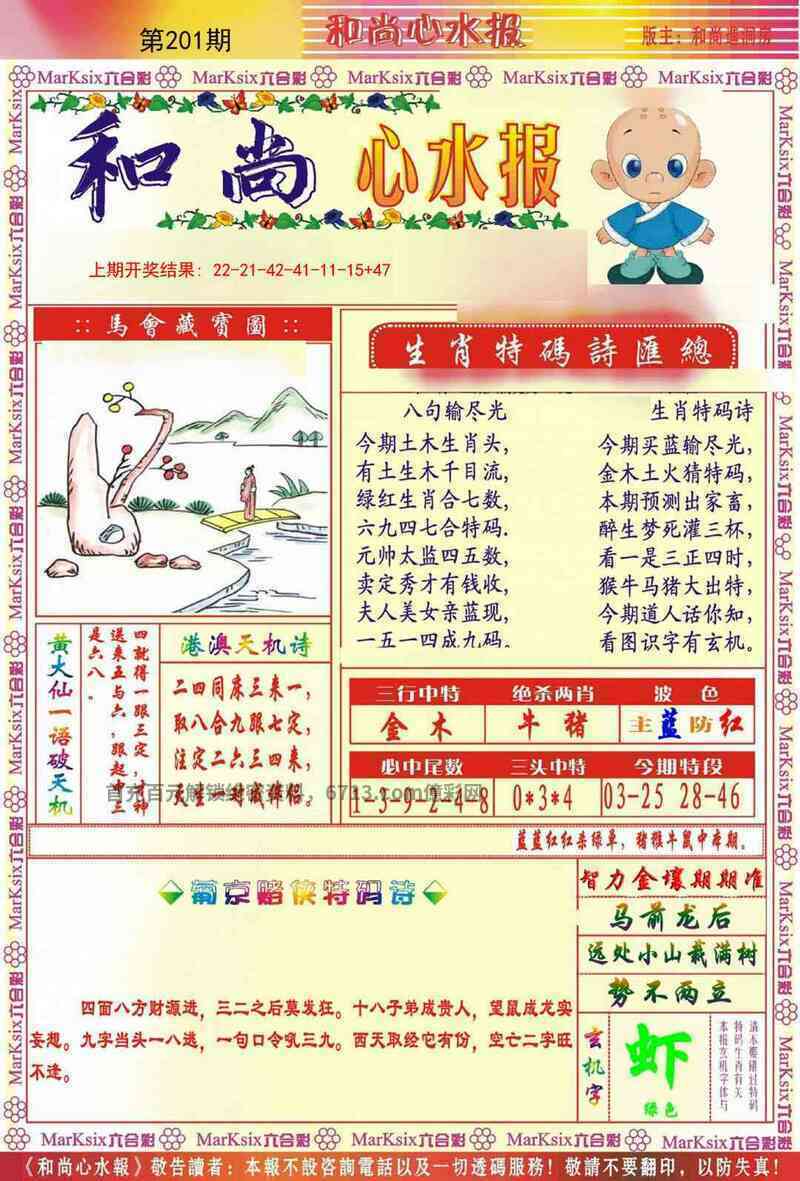 第201期
和尚心水报
版主：和尚进洞房
MarKsix六合彩 MarKsix六合彩 MarKsix六合彩 MarKsix六合彩 MarKsix六合彩
和尚 心水报
上期开奖结果：22-21-42-41-11-15+47
:: 馬會藏寶圖 ::
生肖特碼詩匯總
八句输尽光
今期土木生肖头，
有土生木千目流，
绿红生肖合七数，
六九四七合特码.
元帅太监四五数，
卖定秀才有钱收，
夫人美女亲蓝现，
一五一四成九码.
生肖特码诗
今期买蓝输尽光，
金木土火猜特码，
本期预测出家畜，
醉生梦死灌三杯，
看一是三正四时，
猴牛马猪大出特，
今期道人话你知，
看图识字有玄机。
黄大仙一语破天机
四就得一跟三定，才神
送来五与六，跟起中三
是六八。
港澳天机诗
二四同床三来一，
取八合九跟七定，
注定二六三四来，
天生一对成伴侣。
三行中特 绝杀两肖 波 色
金 木 牛 猪 主蓝防红
必中尾数 三头中特 今期特段
1-3-9-2-4-8 0*3*4 03-25 28-46
6713.com
蓝蓝红红杀绿单，猪猴牛鼠中本期。
葡京赌侠特码诗
四面八方财源进，三二之后莫发狂。十八子弟成贵人，望鼠成龙实
妄想。九字当头一八逃，一句口令吼三九。西天取经它有份，空亡二字旺
不逢。
智力金壤期期准
马前龙后
远处小山栽满树
势不两立
玄机字
虾
绿色
请不要错过特码
特码生肖有关
本报玄机字体与
MarKsix六合彩 MarKsix六合彩 MarKsix六合彩 MarKsix六合彩 MarKsix六合彩
《和尚心水報》敬告讀者：本報不設咨詢電話以及一切透碼服務！敬請不要翻印，以防失真！